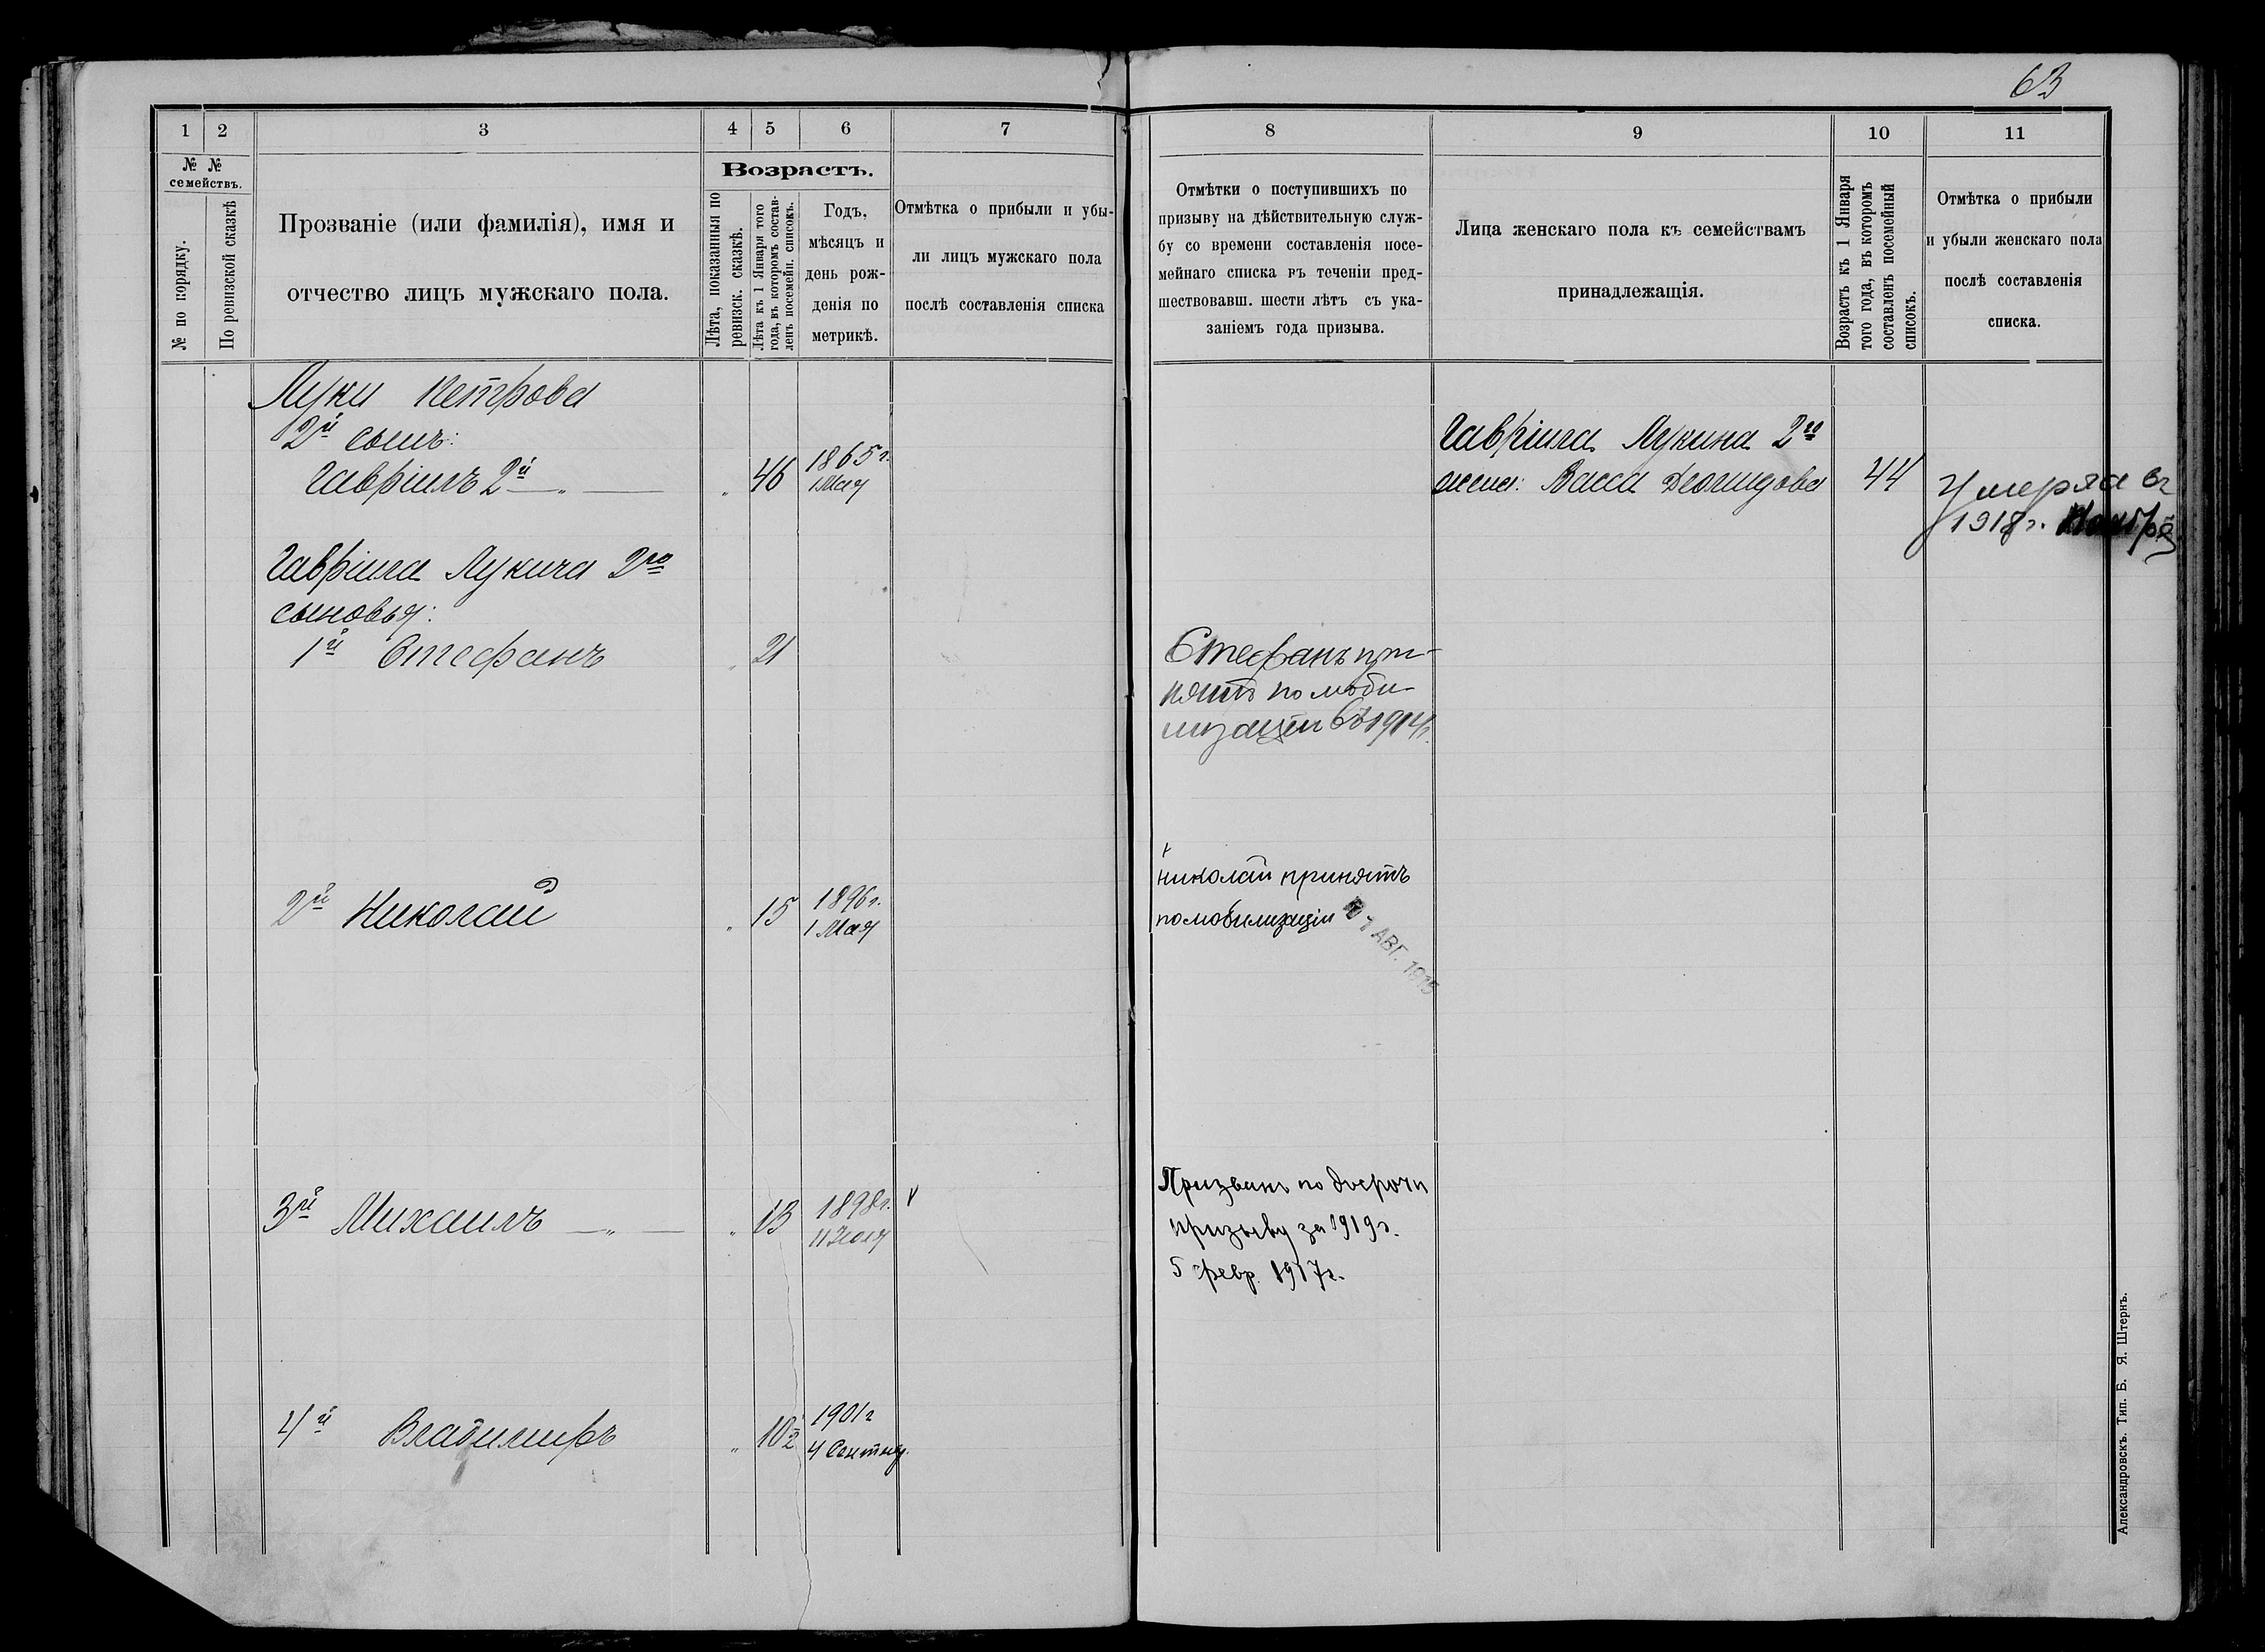 63
1 2 3 4 5 6 7
№ № семействъ.
№ по порядку.
По ревизской сказкѣ
Прозваніе (или фамилія), имя и
отчество лицъ мужскаго пола.
Возрастъ.
Лѣта, показанныя по
ревизск. сказкѣ.
Лѣта къ 1 Января того
года, въ которомъ состав-
ленъ посемейн. списокъ.
Годъ,
мѣсяцъ и
день рож-
денія по
метрикѣ.
Отмѣтка о прибыли и убы-
ли лицъ мужскаго пола
послѣ составленія списка
8 9 10 11
Отмѣтки о поступившихъ по
призыву на дѣйствительную служ-
бу со времени составленія посе-
мейнаго списка въ теченіи пред-
шествовавш. шести лѣтъ съ ука-
заніемъ года призыва.
Лица женскаго пола къ семействамъ
принадлежащія.
Возрастъ къ 1 Января
того года, въ которомъ
составленъ посемейный
списокъ.
Отмѣтка о прибыли
и убыли женскаго пола
послѣ составленія
списка.
Луки Петрова
2й сынъ:
Гавріилъ 2й — „ — „ 46 1865 г.
1 Мая
Гавріила Лукина 2го
жена: Васса 44
Умерла въ
1918 г. Ноября
Гавріила Лукича 2го
сыновья:
1й Стефанъ „ 21
Стефанъ при-
нятъ по моби-
лизаціи въ 1914 г.
2й Николай „ 15 1896 г.
1 Мая
Николай принятъ
по мобилизаціи 7 АВГ. 1915
3й Михаилъ — „ — „ 13 1898 г.
11 Іюля
Призванъ по досрочн
призыву за 1919 г.
5 февр. 1917 г.
4й Владимиръ „ 10½ 1901 г
4 Сентяб.
Александровскъ. Тип. Б. Я. Штернъ.